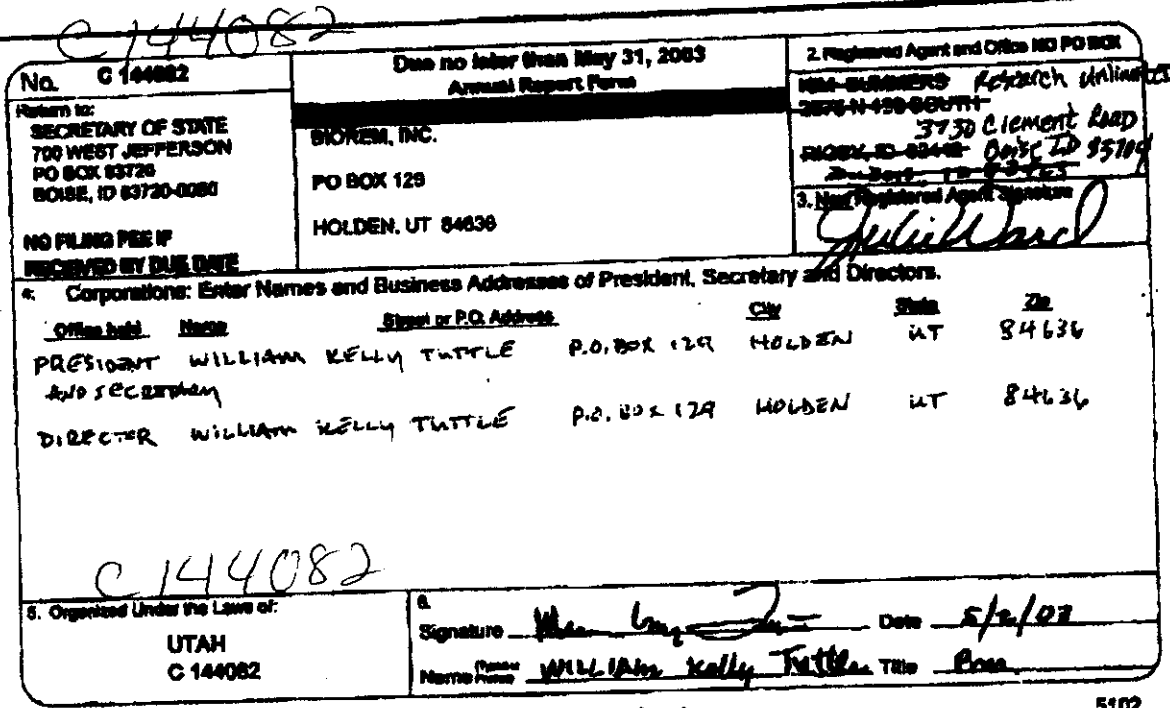 C 144082
No. C 144082
Return to:
SECRETARY OF STATE
700 WEST JEFFERSON
PO BOX 83720
BOISE, ID 83720-0080
NO FILING FEE IF
RECEIVED BY DUE DATE
Due no later than May 31, 2003
Annual Report Form
BIOREM, INC.
PO BOX 129
HOLDEN, UT 84636
2. Registered Agent and Office NO PO BOX
KIM SUMMERS Research Unlimited
3730 Clement Road
RIGBY, ID 83442 Boise ID 83704
3. New Registered Agent Signature
Julie Ward
4. Corporations: Enter Names and Business Addresses of President, Secretary and Directors.
Office held Name Street or P.O. Address City State Zip
PRESIDENT WILLIAM KELLY TUTTLE P.O. BOX 129 HOLDEN UT 84636
AND SECRETARY
DIRECTER WILLIAM KELLY TUTTLE P.O. BOX 129 HOLDEN UT 84636
C 144082
5. Organized Under the Laws of:
UTAH
C 144082
6.
Signature Date 5/2/03
Name WILLIAM Kelly Tuttle Title Pres
5102